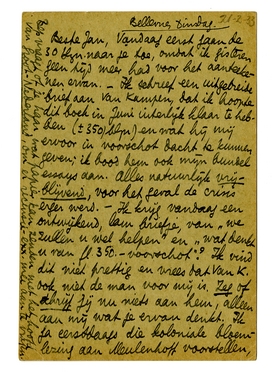 Bellevue Dinsdag 21-2-33
Beste Jan, Vandaag eerst gaan de
30 Flrn. naar je toe, omdat ik gisteren
geen tijd meer had voor het aanteeke-
nen ervan. – Ik schreef een uitgebreide
brief aan Van Kampen, dat ik hoopte
dit boek in Juni uiterlijk klaar te heb-
ben (± 350 blzn) en wat hij mij
ervoor in voorschot dacht te kunnen
geven; ik bood hem ook mijn bundel
essays aan. Alles natuurlijk vrij-
blijvend, voor het geval de crisis
erger werd. – Ik krijg vandaag een
ontwijkend, lam briefje, van „we
zullen u wel helpen” en „wat denkt
u van fl. 350.- voorschot”? Ik vind
dit niet prettig en vrees dat Van K.
ook niet de man voor mij is. Zeg of
schrijf jij nu niets aan hem, alleen
aan mij wat je ervan denkt. Ik
ga eerstdaags die koloniale bloem-
lezing aan Meulenhoff voorstellen,